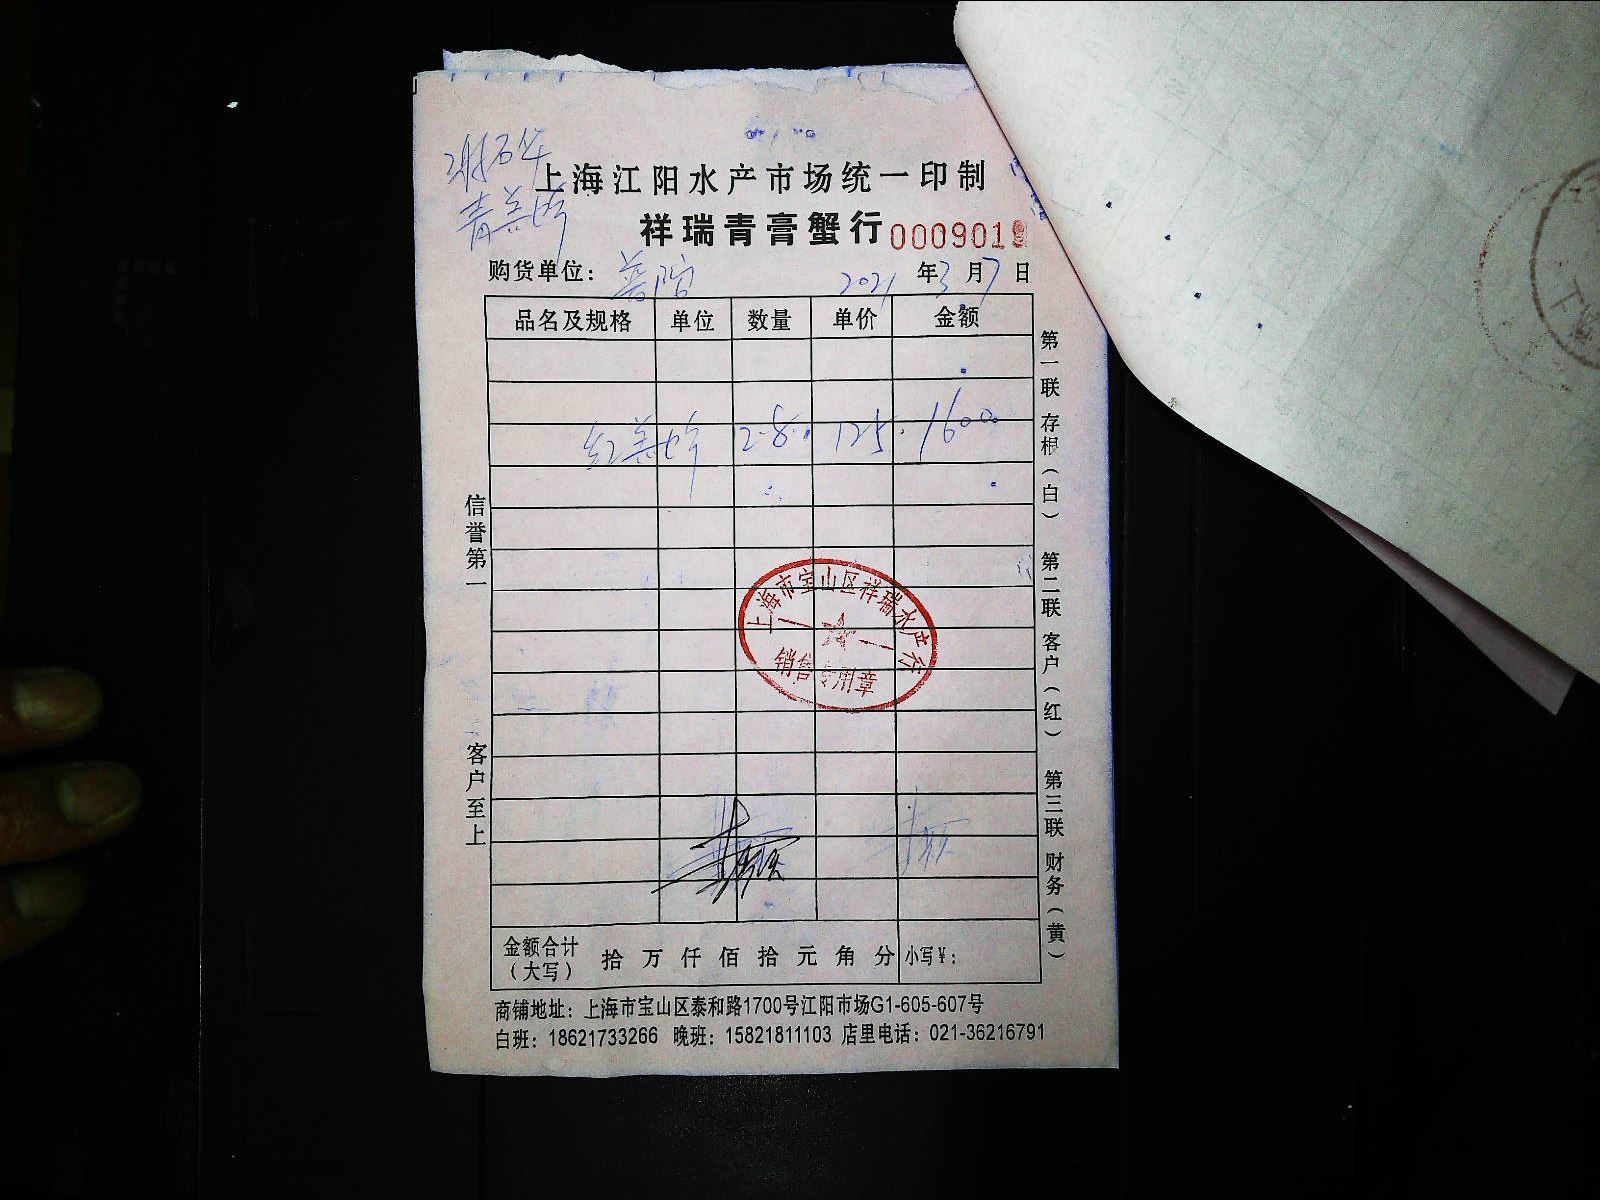 上海江阳水产市场统一印制
祥瑞青膏蟹行 000901
购货单位：普陀 2021年3月7日
品名及规格 单位 数量 单价 金额
2.8. 125. 1600
信誉第一
客户至上
第一联 存根（白） 第二联 客户（红） 第三联 财务（黄）
上海市宝山区祥瑞水产行
销售专用章
金额合计（大写） 拾 万 仟 佰 拾 元 角 分 小写¥：
商铺地址：上海市宝山区泰和路1700号江阳市场G1-605-607号
白班：18621733266 晚班：15821811103 店里电话：021-36216791